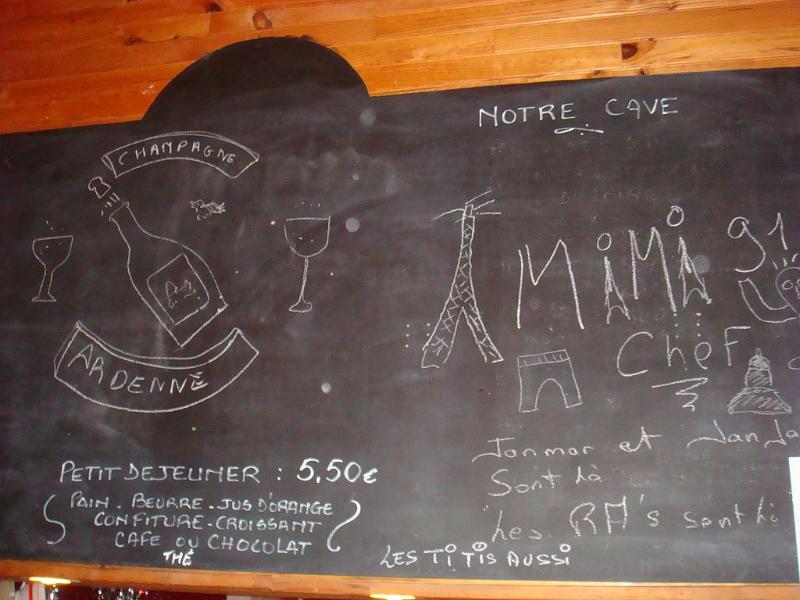 CHAMPAGNE
ARDENNE
PETIT DEJEUNER : 5,50€
PAIN - BEURRE - JUS D'ORANGE
CONFITURE - CROISSANT
CAFE OU CHOCOLAT
THÉ
NOTRE CAVE
MiMi 91
Chef
Jonmar et
Sont là
Les RA's sont là
LES TiTis AUSSi